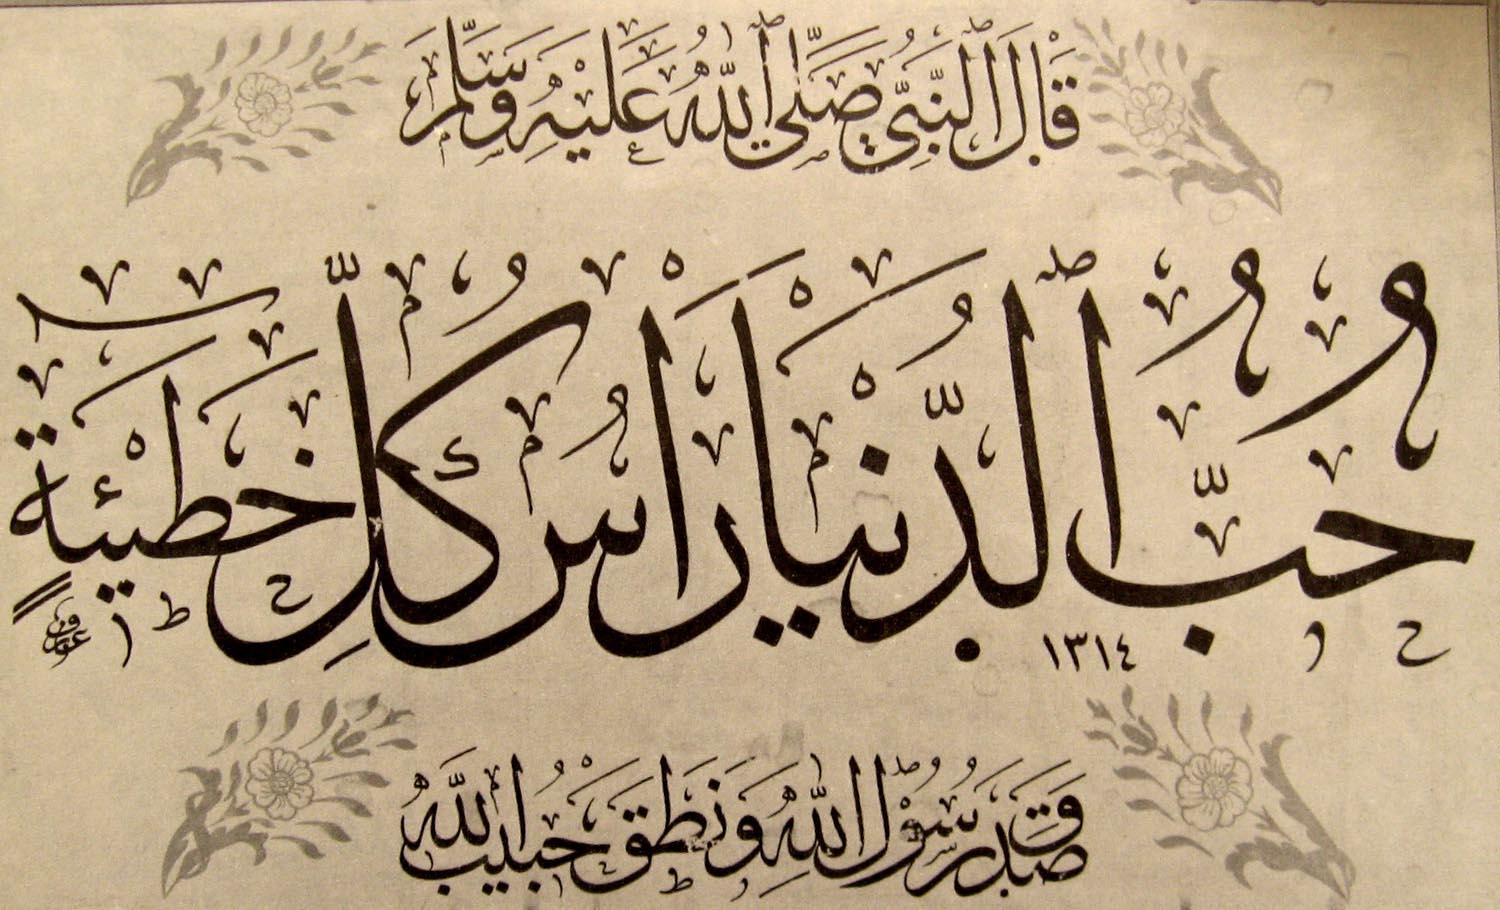 قَالَ النَّبِيُّ صَلَّى اللّٰهُ عَلَيْهِ وَسَلَّمَ
حُبُّ الدُّنْيَا رَأْسُ كُلِّ خَطِيْئَةٍ
١٣١٤
صَدَقَ رَسُوْلُ اللّٰهِ وَنَطَقَ حَبِيْبُ اللّٰهِ